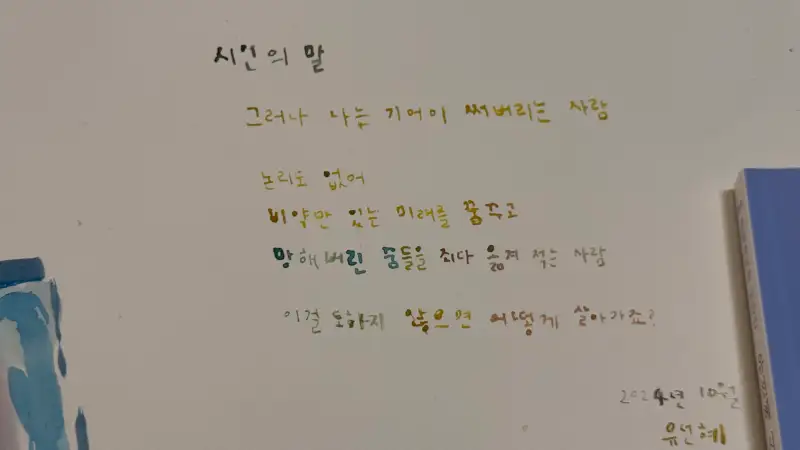 시인의 말
그러나 나는 기어이 써버리는 사람
논리도 없어
비약만 있는 미래를 꿈꾸고
망해버린 꿈들을 죄다 옮겨 적는 사람
이걸 도하지 않으면 어떻게 살아가죠?
2024년 10월
유선혜